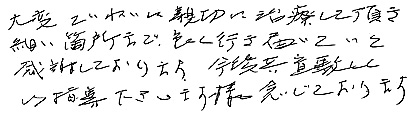 大変ていねいに親切に治療して頂き
細い箇所まで、よく行き届いていて
感謝しております 今後共
ご指導下さいます様 念じております